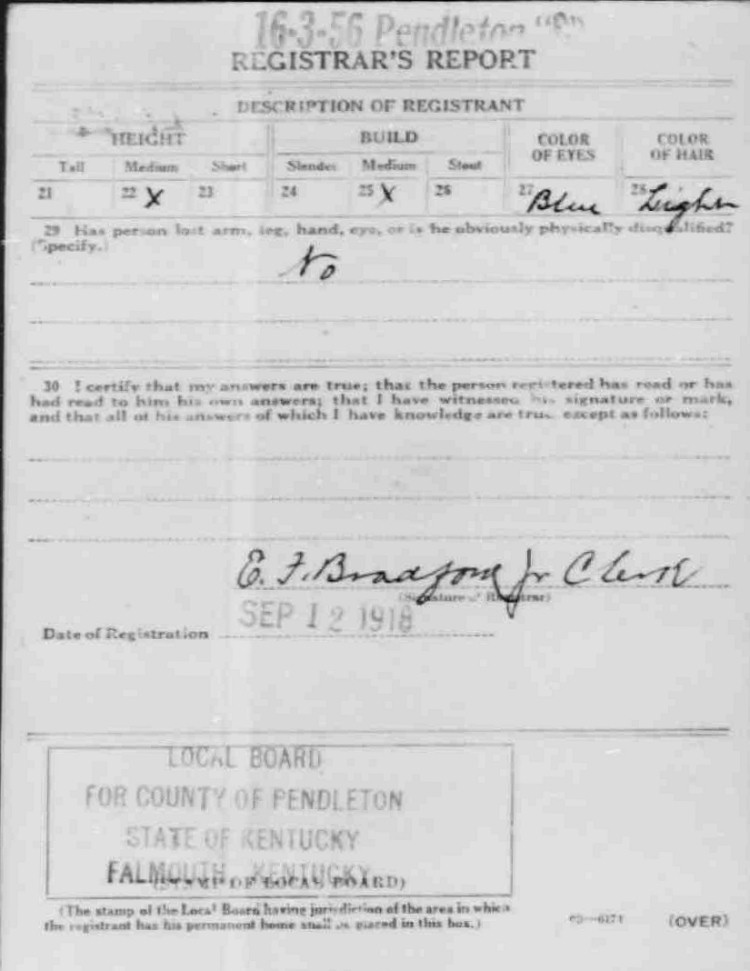 16-3-56 Pendleton "C"
REGISTRAR'S REPORT
DESCRIPTION OF REGISTRANT
HEIGHT BUILD COLOR OF EYES COLOR OF HAIR
Tall Medium Short Slender Medium Stout
21 22 X 23 24 25 X 26 27 Blue 28 Light
29 Has person lost arm, leg, hand, eye, or is he obviously physically disqualified?
(Specify.)
No
30 I certify that my answers are true; that the person registered has read or has
had read to him his own answers; that I have witnessed his signature or mark,
and that all of his answers of which I have knowledge are true, except as follows:
E. F. Bradford Jr Clerk
(Signature of Registrar)
Date of Registration SEP 12 1918
LOCAL BOARD
FOR COUNTY OF PENDLETON
STATE OF KENTUCKY
FALMOUTH, KENTUCKY
(STAMP OF LOCAL BOARD)
(The stamp of the Local Board having jurisdiction of the area in which
the registrant has his permanent home shall be placed in this box.)
(OVER)